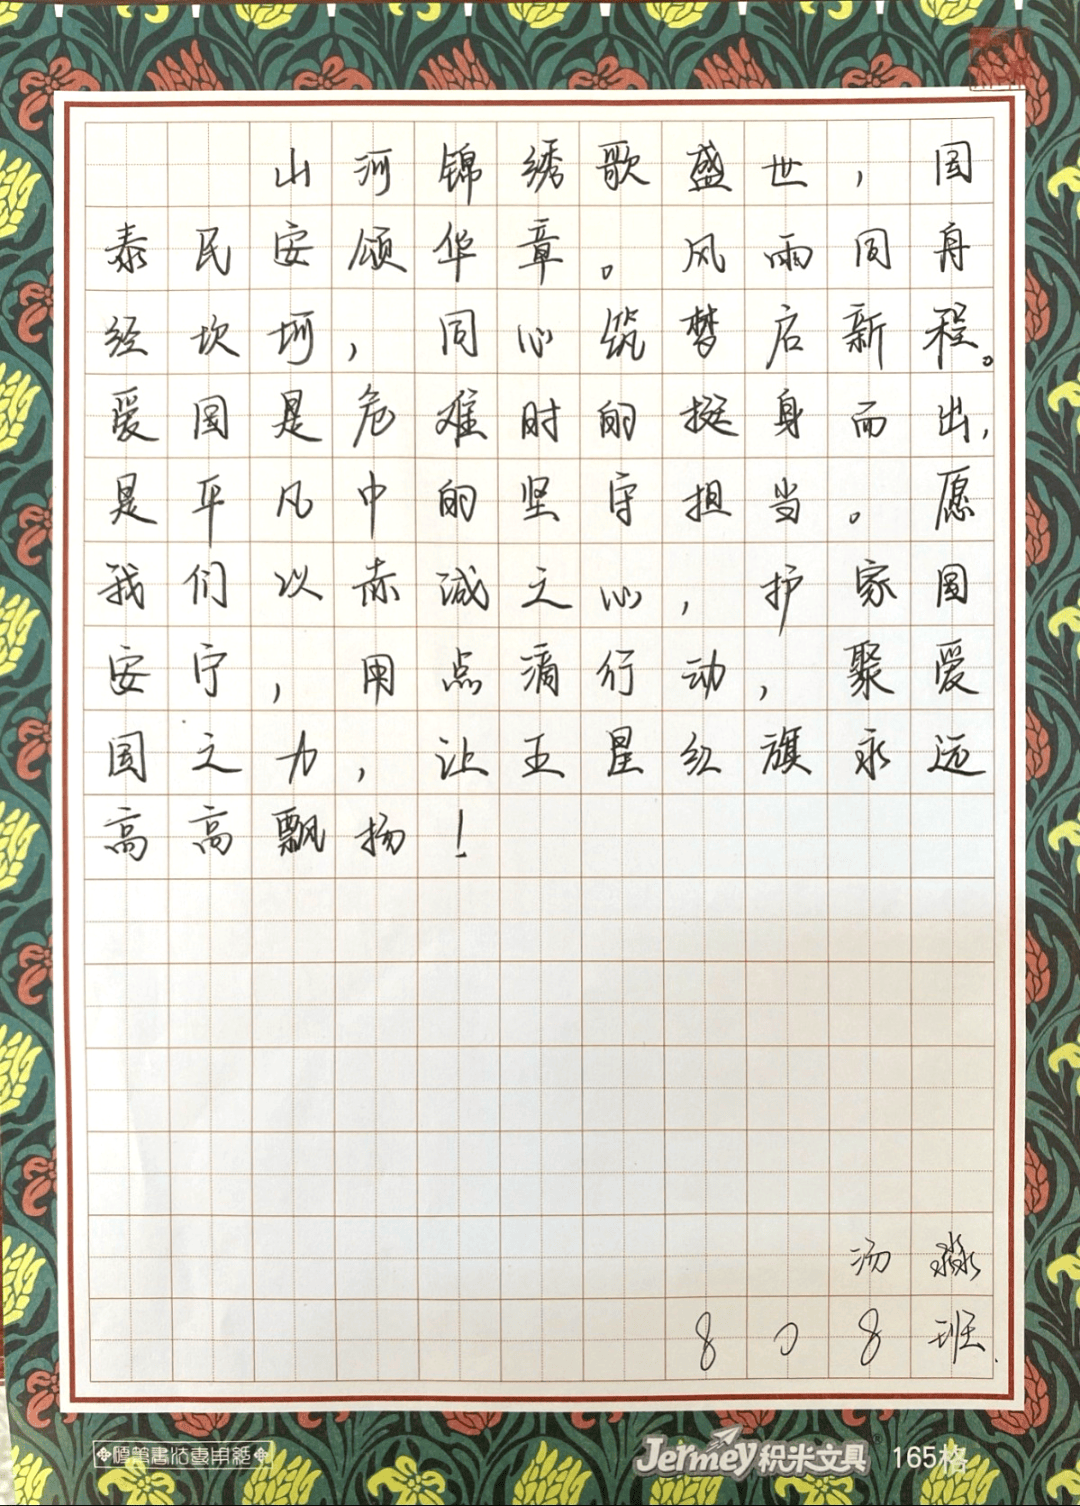 山河锦绣歌盛世，国
泰民安颂华章。风雨同舟
经坎坷，同心筑梦启新程。
爱国是危难时的挺身而出，
是平凡中的坚守担当。愿
我们以赤诚之心，护家国
安宁，用点滴行动，聚爱
国之力，让五星红旗永远
高高飘扬！
汤淼
808班
硬笔书法专用纸
Jermey积米文具® 165格